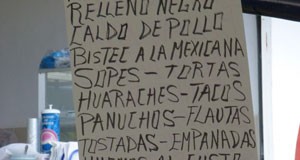 RELLENO NEGRO
CALDO DE POLLO
BISTEC A LA MEXICANA
SOPES - TORTAS
HUARACHES - TACOS
PANUCHOS - FLAUTAS
TOSTADAS - EMPANADAS
HUEVOS AL GUSTO